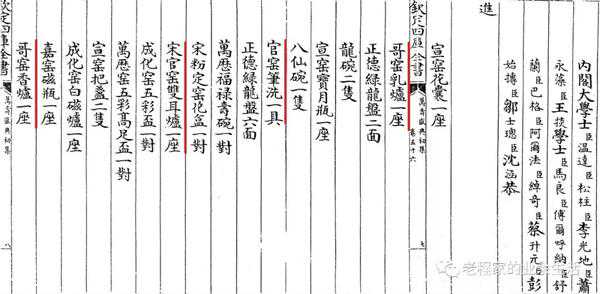 內閣大學士臣溫達臣松柱臣李光地臣蕭
永藻臣王掞學士臣馬良臣傅爾呼納臣舒
蘭臣巴格臣阿爾法臣綽奇臣蔡升元臣彭
始摶臣鄒士璁臣沈涵恭
進
宣窑花囊一座
欽定四庫全書 萬壽盛典初集 卷五十六 七
哥窑乳爐一座
正德綠龍盤二面
龍碗二隻
宣窑寶月瓶一座
八仙碗一隻
官窑筆洗一具
正德綠龍盤六面
萬歷福祿壽碗一對
宋粉定窑花盒一對
宋官窑雙耳爐一座
成化窑五彩盃一對
萬歷窑五彩高足盃一對
宣窑把盞二隻
成化窑白磁爐一座
嘉窑磁瓶一座
哥窑香爐一座
欽定四庫全書 萬壽盛典初集
老程家的业余生活